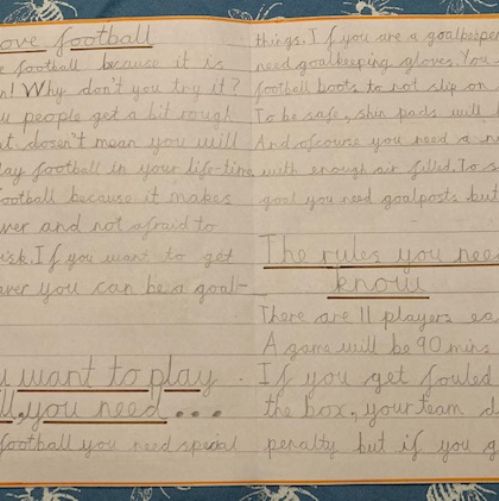 ove football
e football because it is
n! Why don't you try it?
u people get a bit rough
at dosen't mean you will
lay football in your life-time
ootball because it makes
ver and not afraid to
isk. If you want to get
aver you can be a goal-
u want to play
ll, you need...
football you need special
things. If you are a goalkeeper
need goalkeeping gloves. You
football boots to not slip on
To be safe, shin pads will
And ofcourse you need a
with enough air filled. To s
goal you need goalposts but
The rules you nee
know
There are 11 players ea
A game will be 90 mins
If you get fouled
the box, your team d
penalty but if you g